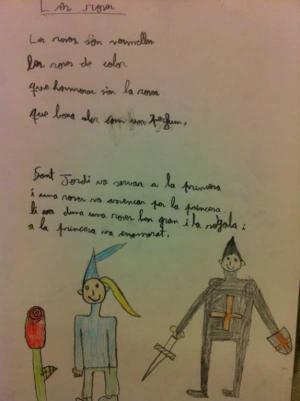 Les roses
Les roses són vermelles
les roses de color
que hermoses són la rosa
que bona olor com un perfum.
Sant Jordi va salvar a la princesa
i una rosa va arrencar per la princesa
li va duna una roses ben gran i la regala i
a la princesa va enamorat.